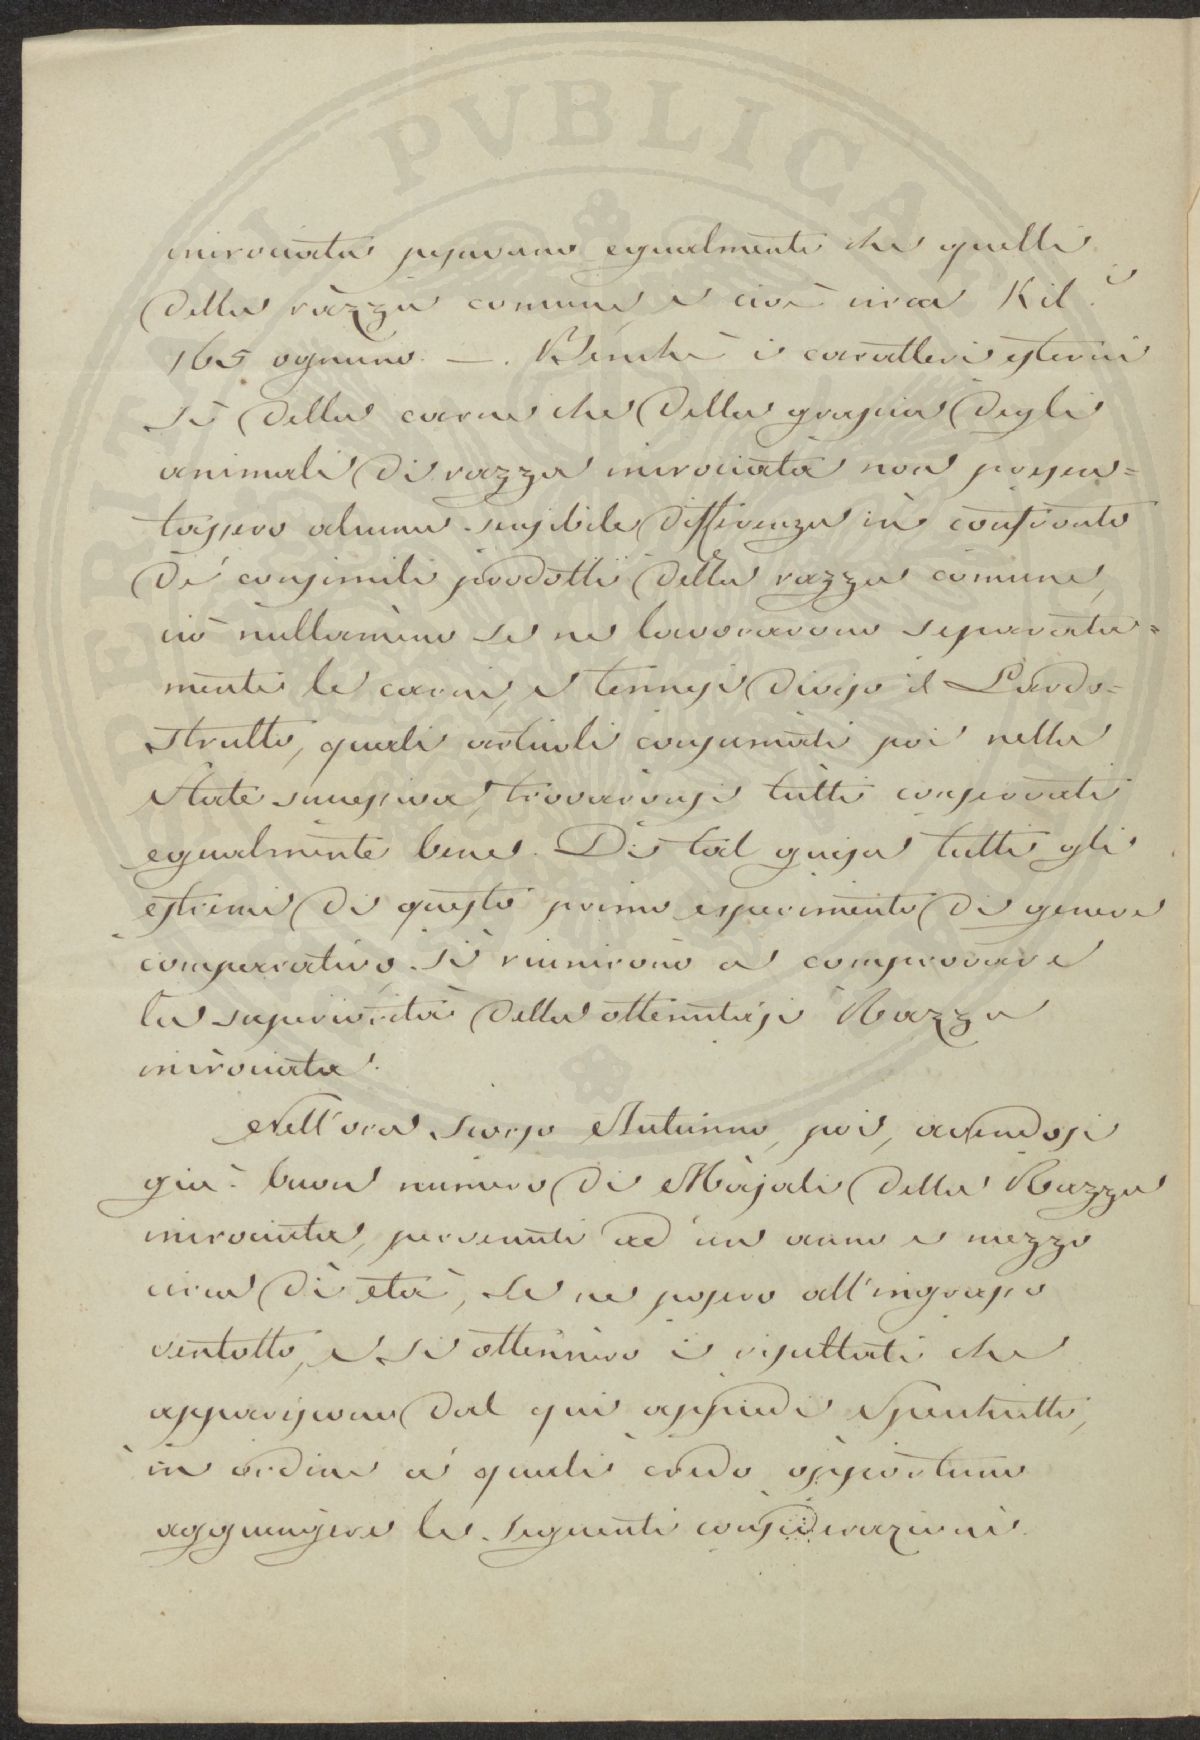 PVBLICA
incrociata pesavano egualmente che quelli
della razza comune, e cioè circa Kil.i
165 ognuno. — . Benchè i caratteri esterni
sì della carne che della grascia degli
animali di razza incrociata non presen=
tassero alcuna sensibile differenza in confronto
de' consimili prodotti della razza comune,
ciò nullameno se ne lavorarono separata=
mente le carni, e tennesi diviso il Lardo=
strutto, quali articoli consumati poi nella
State successiva, trovaronsi tutti conservati
egualmente bene. Di tal guisa tutti gli
estremi di questo primo esperimento di genere
comparativo, si riunirono a comprovare
la superiorità della ottenutasi Razza
incrociata.
Nell'ora scorso Autunno, poi, avendosi
già buon numero di Majali della Razza
incrociata, pervenuti ad un anno e mezzo
circa di età, se ne posero all'ingrasso
ventotto, e si ottennero i risultati che
appariscono dal qui appiedi Specchietto,
in ordine a' quali credo opportuno
aggiungere le seguenti considerazioni.